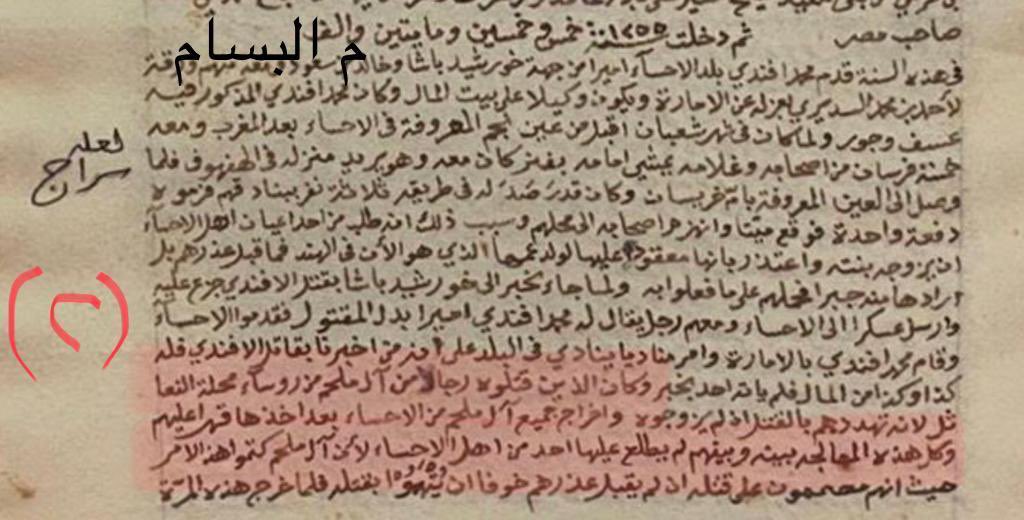 صاحب مصر ثم دخلت سنة ١٢٥٥ خمس وخمسين ومايتين والف
م البسام
في هذه السنة قدم محمد افندي بلد الاحساء اميرا من جهة خورشيد باشا وخالد بن سعود ومعه
لاحمد بن محمد السديري بعزله عن الامارة ويكون وكيلا على بيت المال وكان محمد افندي المذكور فيه
عسف وجور ولما كان في شهر شعبان اقبل من عين نجم المعروفة في الاحساء بعد المغرب ومعه
خمسة فرسان من اصحابه وغلامه يمشي امامه بفنر كان معه وهو يريد منزله في الهفهوف فلما
لعله
سراج
وصل الى العين المعروفة بام خريسان وكان قد رصد له في طريقه ثلاثة نفر ببنادقهم فرموه
دفعة واحدة فوقع ميتا وانهزم اصحابه الى محلهم وسبب ذلك انه طلب من احد اعيان اهل الاحساء
ان يزوجه بنته واعتذر بانها معقود عليها لولد عمها الذي هو الآن في الهند فما قبل عذرهم بل
ارادها منه جبرا فحملهم على ما فعلوا به ولما جاء الخبر الى خورشيد باشا بقتل الافندي جزع عليه
وارسل عسكرا الى الاحساء ومعهم رجل يقال له محمد افندي اميرا بدل المقتول فقدموا الاحساء
(٢)
وقام محمد افندي بالامارة وامر مناديا ينادي في البلد على ان من اخبرنا بقاتل الافندي فله
كذا وكذا من المال فلم ياته احد بخبر وكان الذين قتلوه رجالا من آل ملحم من روساء محلة النعا
ثل لانه تهددهم بالقتل اذ لم يزوجوه واخراج جميع آل ملحم من الاحساء بعد اخذها قهرا عليهم
وكل هذه المعالجه بينه وبينهم لم يطلع عليها احد من اهل الاحساء لأن آل ملحم كتموا هذا الامر
حيث انهم مصممون على قتله ان لم يقبل عذرهم خوفا ان يتهموا بقتله فلما خرج هذه المرة